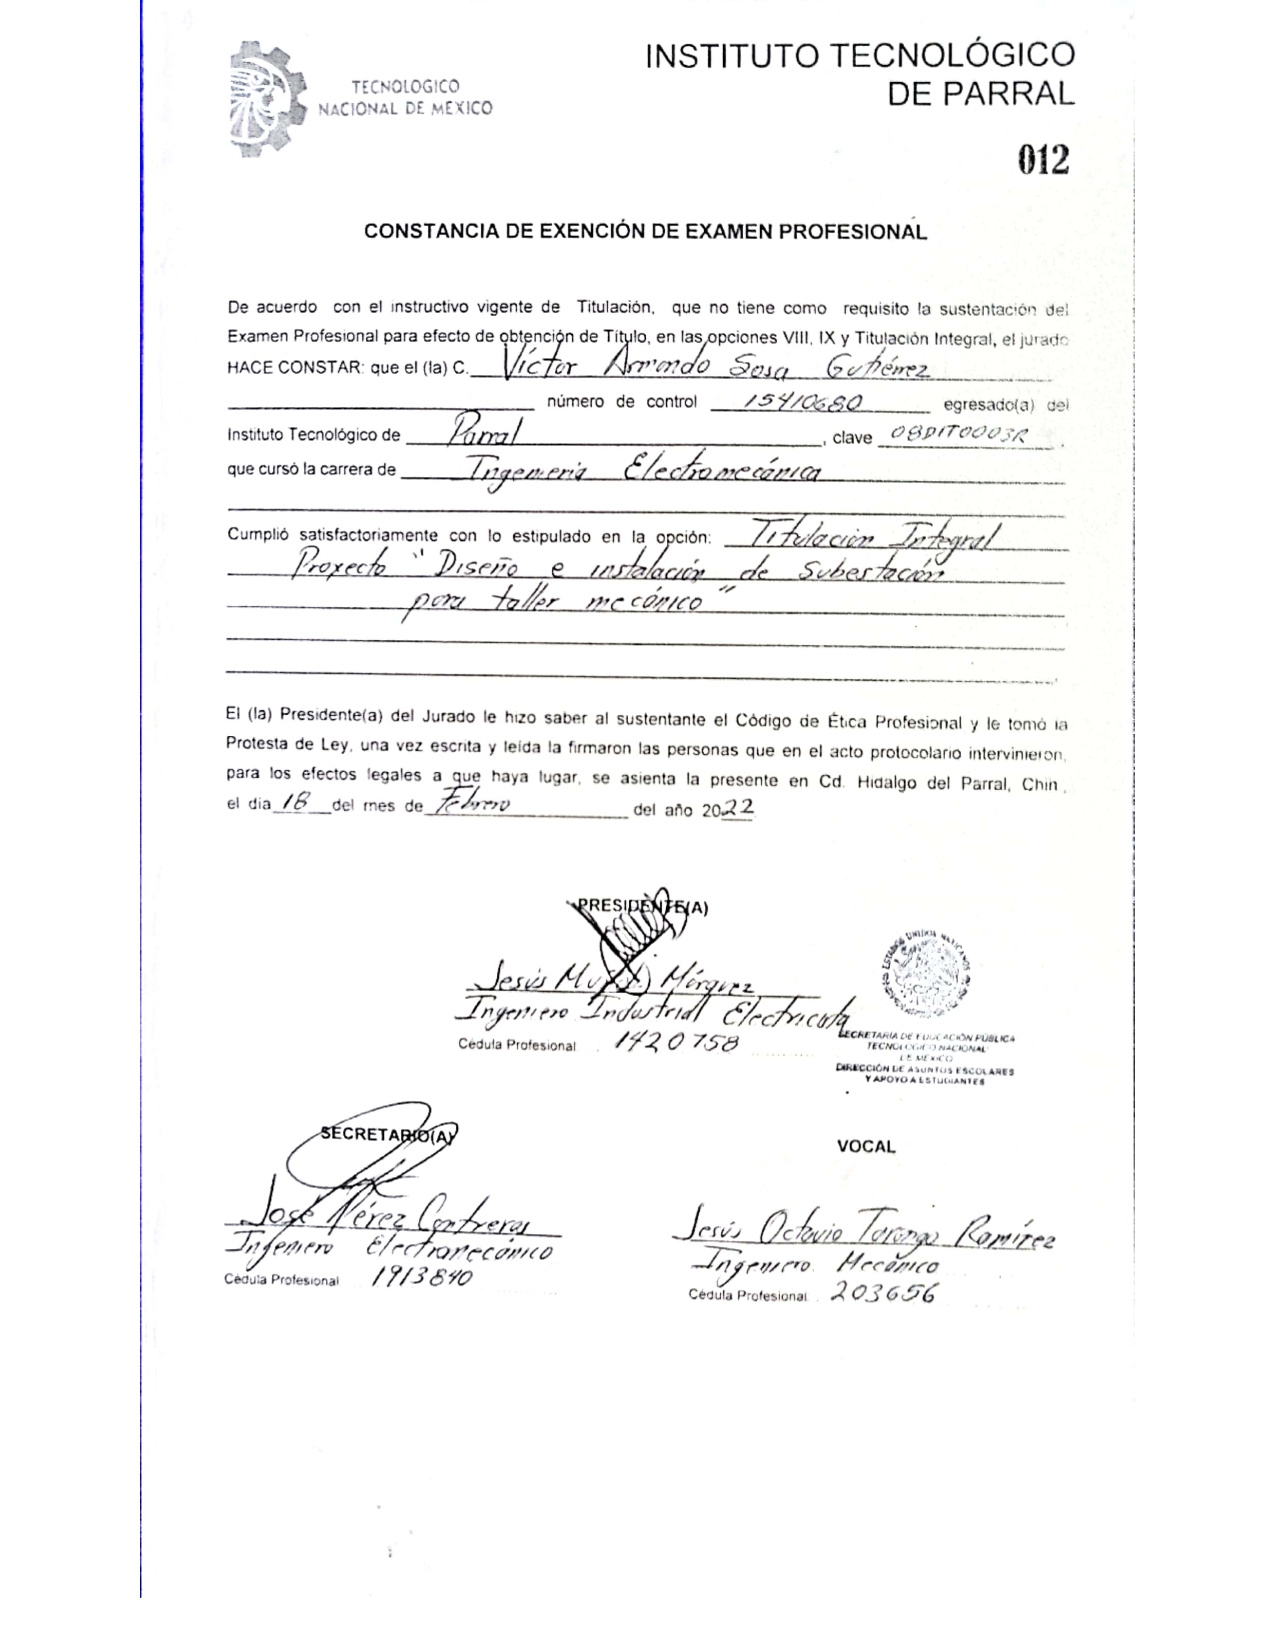 TECNOLOGICO
NACIONAL DE MEXICO
INSTITUTO TECNOLÓGICO
DE PARRAL
012
CONSTANCIA DE EXENCIÓN DE EXAMEN PROFESIONAL
De acuerdo con el instructivo vigente de Titulación, que no tiene como requisito la sustentación del
Examen Profesional para efecto de obtención de Título, en las opciones VIII, IX y Titulación Integral, el jurado
HACE CONSTAR: que el (la) C. Víctor Armando Sosa Gutiérrez
número de control 15410680 egresado(a) del
Instituto Tecnológico de Parral, clave 08DIT0003R.
que cursó la carrera de Ingeniería Electromecánica
Cumplió satisfactoriamente con lo estipulado en la opción: Titulación Integral
Proyecto "Diseño e instalación de Subestación
para taller mecánico"
El (la) Presidente(a) del Jurado le hizo saber al sustentante el Código de Ética Profesional y le tomó la
Protesta de Ley, una vez escrita y leída la firmaron las personas que en el acto protocolario intervinieron,
para los efectos legales a que haya lugar, se asienta la presente en Cd. Hidalgo del Parral, Chih.,
el día 18 del mes de Febrero del año 2022
PRESIDENTE(A)
Jesús Márquez
Ingeniero Industrial Electricista
Cédula Profesional 1420758
ESTADOS UNIDOS MEXICANOS
SECRETARÍA DE EDUCACIÓN PÚBLICA
TECNOLÓGICO NACIONAL
DE MÉXICO
DIRECCIÓN DE ASUNTOS ESCOLARES
Y APOYO A ESTUDIANTES
SECRETARIO(A)
José Pérez Contreras
Ingeniero Electromecánico
Cédula Profesional 1913840
VOCAL
Jesús Octavio Tarango Ramírez
Ingeniero Mecánico
Cédula Profesional 203656